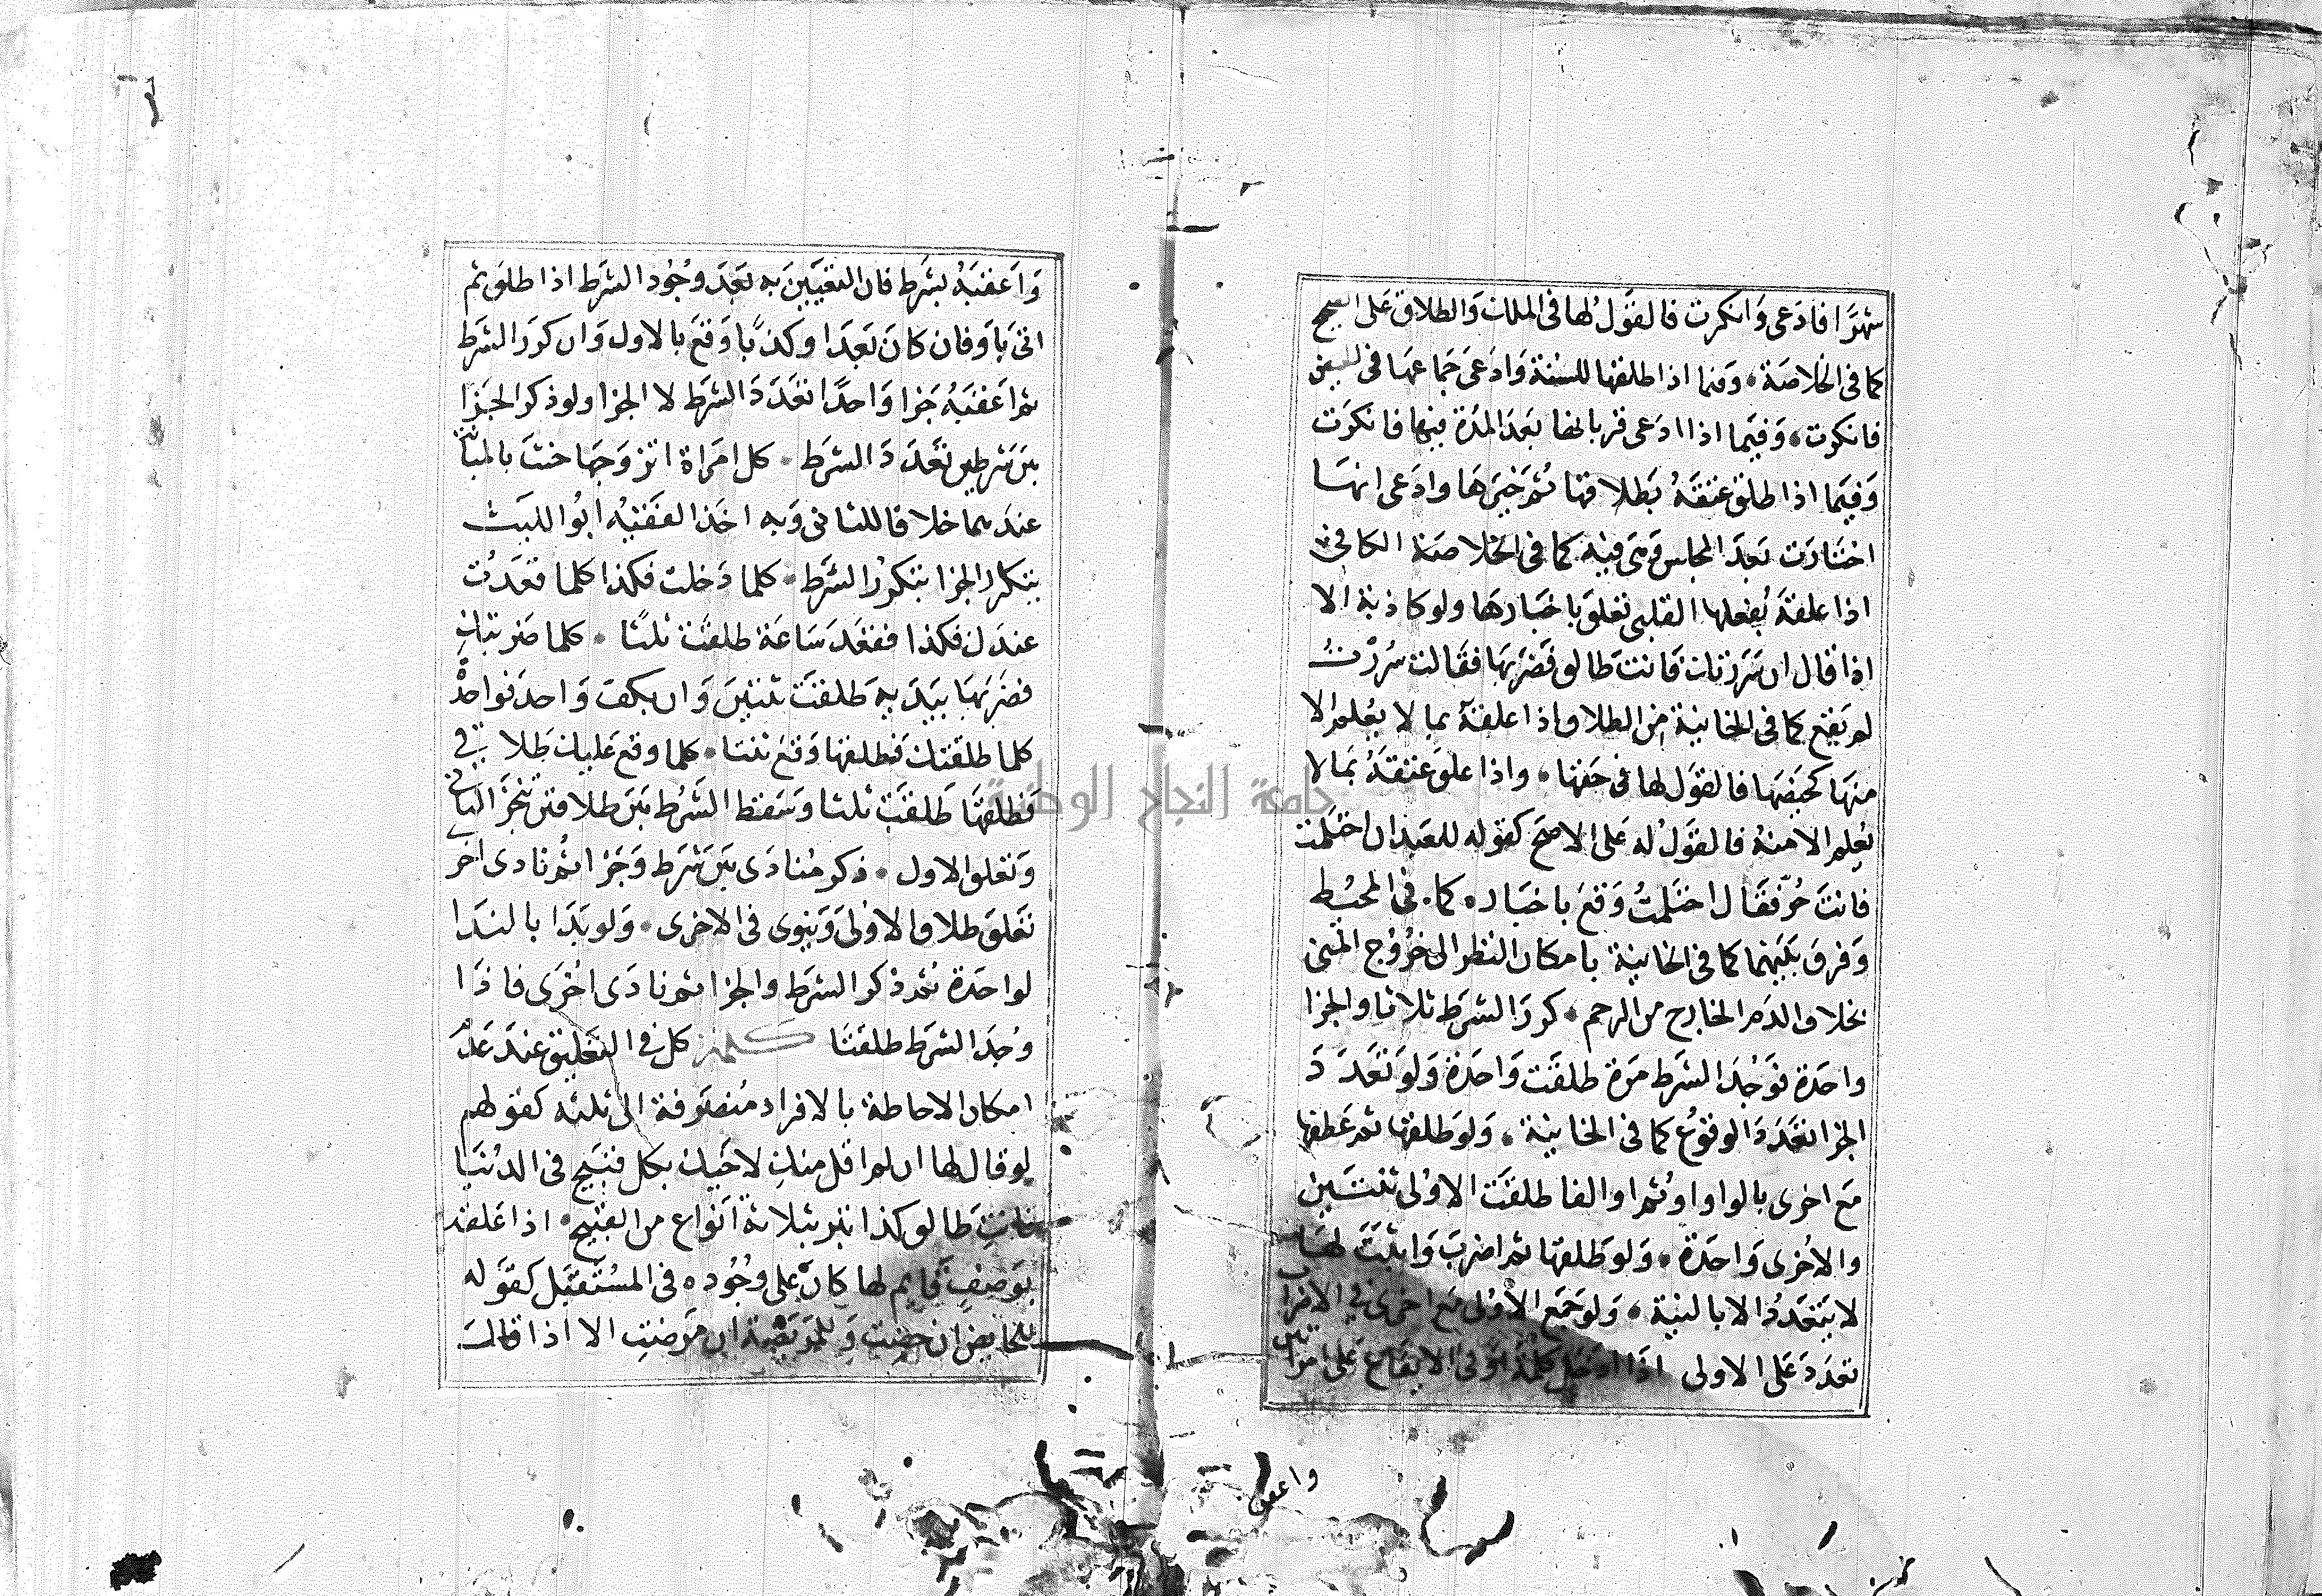 شهرا فادعى وانكرت فالقول لها في الملك والطلاق على الصحيح
كما في الخلاصة، وفيما اذا طلقها للسنة وادعى جماعها في الحيض
فانكرت، وفيما اذا ادعى قربانها بعد المدة فيها فانكرت
وفيما اذا علق عتقه بطلاقها ثم خيرها وادعى انها
اختارت بعد المجلس وهي فيه كما في الخلاصة الكافي
اذا علقه بفعلها القلبي تعلق باخبارها ولو كاذبة الا
اذا قال ان سررتك فانت طالق فضربها فقالت سررت
لم يقع كما في الخانية من الطلاق اذا علقه بما لا يعلم الا
منها كحيضها فالقول لها في حقها، واذا علق عتقه بما لا
يعلم الا منه فالقول له على الاصح كقوله للعبد ان احتلمت
فانت حر فقال احتلمت وقع باخباره كما في المحيط
وفرق بينهما كما في الخانية بامكان النظر الى خروج المني
بخلاف الدم الخارج من الرحم، كرر الشرط ثلاثا والجزا
واحدة فوجد الشرط مرة طلقت واحدة ولو تعدد
الجزا تعدد الوقوع كما في الخانية، ولو طلقها ثم عطفها
مع اخرى بالواو او ثم او الفا طلقت الاولى ثنتين
والاخرى واحدة، ولو طلقها ثم اضرب واثبت لها
لا يتعدد الا بالنية، ولو جمع الاولى مع اخرى في الاضراب
تعدد على الاولى اذا ادخل كلمة او في الايقاع على امراتين
واعقبه
واعقبه بشرط فان التعيين به بعد وجود الشرط اذا طلق ثم
اتى باو فان كان بعدا وكذبا وقع بالاول وان كرر الشرط
ثم اعقبه جزا واحدا تعدد الشرط لا الجزا ولو ذكر الجزا
بين شرطين تعدد الشرط، كل امراة اتزوجها حنث بالمبانة
عندهما خلافا للثاني وبه اخذ الفقيه ابو الليث
يتكرر الجزا بتكرر الشرط، كلما دخلت فكذا كلما قعدت
عندك فكذا فقعد ساعة طلقت ثلثا، كلما ضربتك
فضربها بيديه طلقت ثنتين وان بكف واحد فواحدة
كلما طلقتك فطلقها وقع ثنتا، كلما وقع عليك طلاقي
فطلقها طلقت ثلثا وسقط الشرط بين طلاقين تنجز الثاني
وتعلق الاول، ذكر منادى بين شرط وجزا ثم نادى اخرى
تعلق طلاق الاولى وينوى في الاخرى، ولو بدا بالندا
لواحدة ثم ذكر الشرط والجزا ثم نادى اخرى فاذا
وجد الشرط طلقتا كلمة كل في التعليق عند عدم
امكان الاحاطة بالافراد منصرفة الى ثلثه كقولهم
لو قال لها ان لم اقل منك لاخيك بكل قبيح في الدنيا
فانت طالق كذا يبر بثلاثة انواع من القبيح، اذا علقه
بوصف قايم لها كان على وجوده في المستقبل كقوله
للحايض ان حضت وللمريضة ان مرضت الا اذا قال